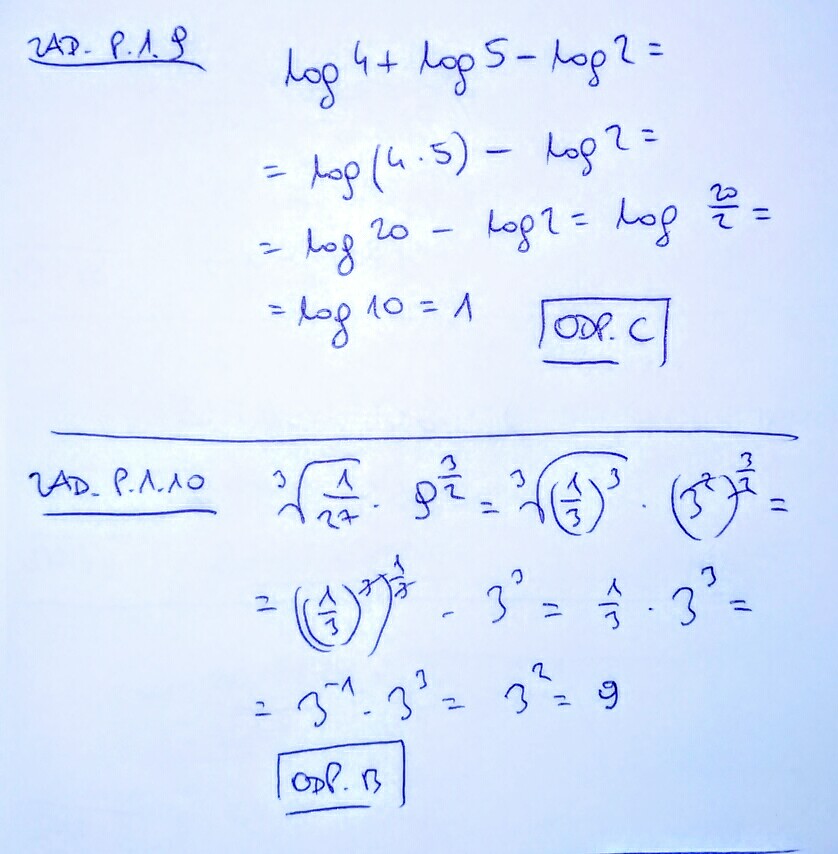 ZAD. P.1.9
log 4 + log 5 - log 2 =
= log(4·5) - log 2 =
= log 20 - log 2 = log 20/2 =
= log 10 = 1
ODP. C
ZAD. P.1.10
∛(1/27) · 9^(3/2) = ∛((1/3)^3) · (3^2)^(3/2) =
= ((1/3)^3)^(1/3) · 3^3 = 1/3 · 3^3 =
= 3^-1 · 3^3 = 3^2 = 9
ODP. B